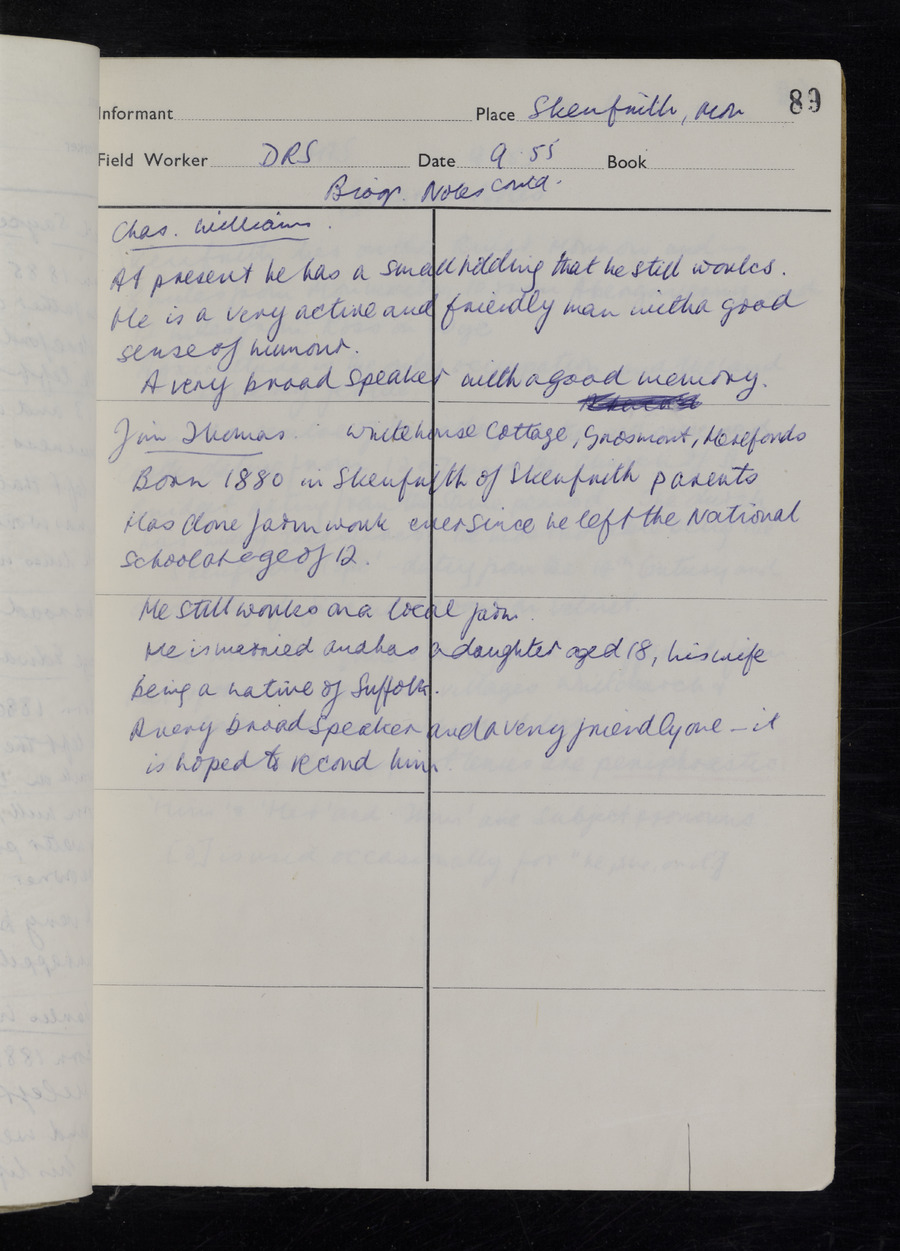 Informant Place Skenfrith, Mon 89
Field Worker DRS Date 9.55 Book
Biogr. Notes contd.
Chas. Williams.
At present he has a smallholding that he still works.
He is a very active and friendly man with a good
sense of humour.
A very broad speaker with a good memory.
Jim Thomas. Whitehouse Cottage, Grosmont, Herefords
Born 1880 in Skenfrith of Skenfrith parents
Has done farm work ever since he left the National
School at age of 12.
He still works on a local farm.
He is married and has a daughter aged 18, his wife
being a native of Suffolk.
A very broad speaker and a very friendly one – it
is hoped to record him.